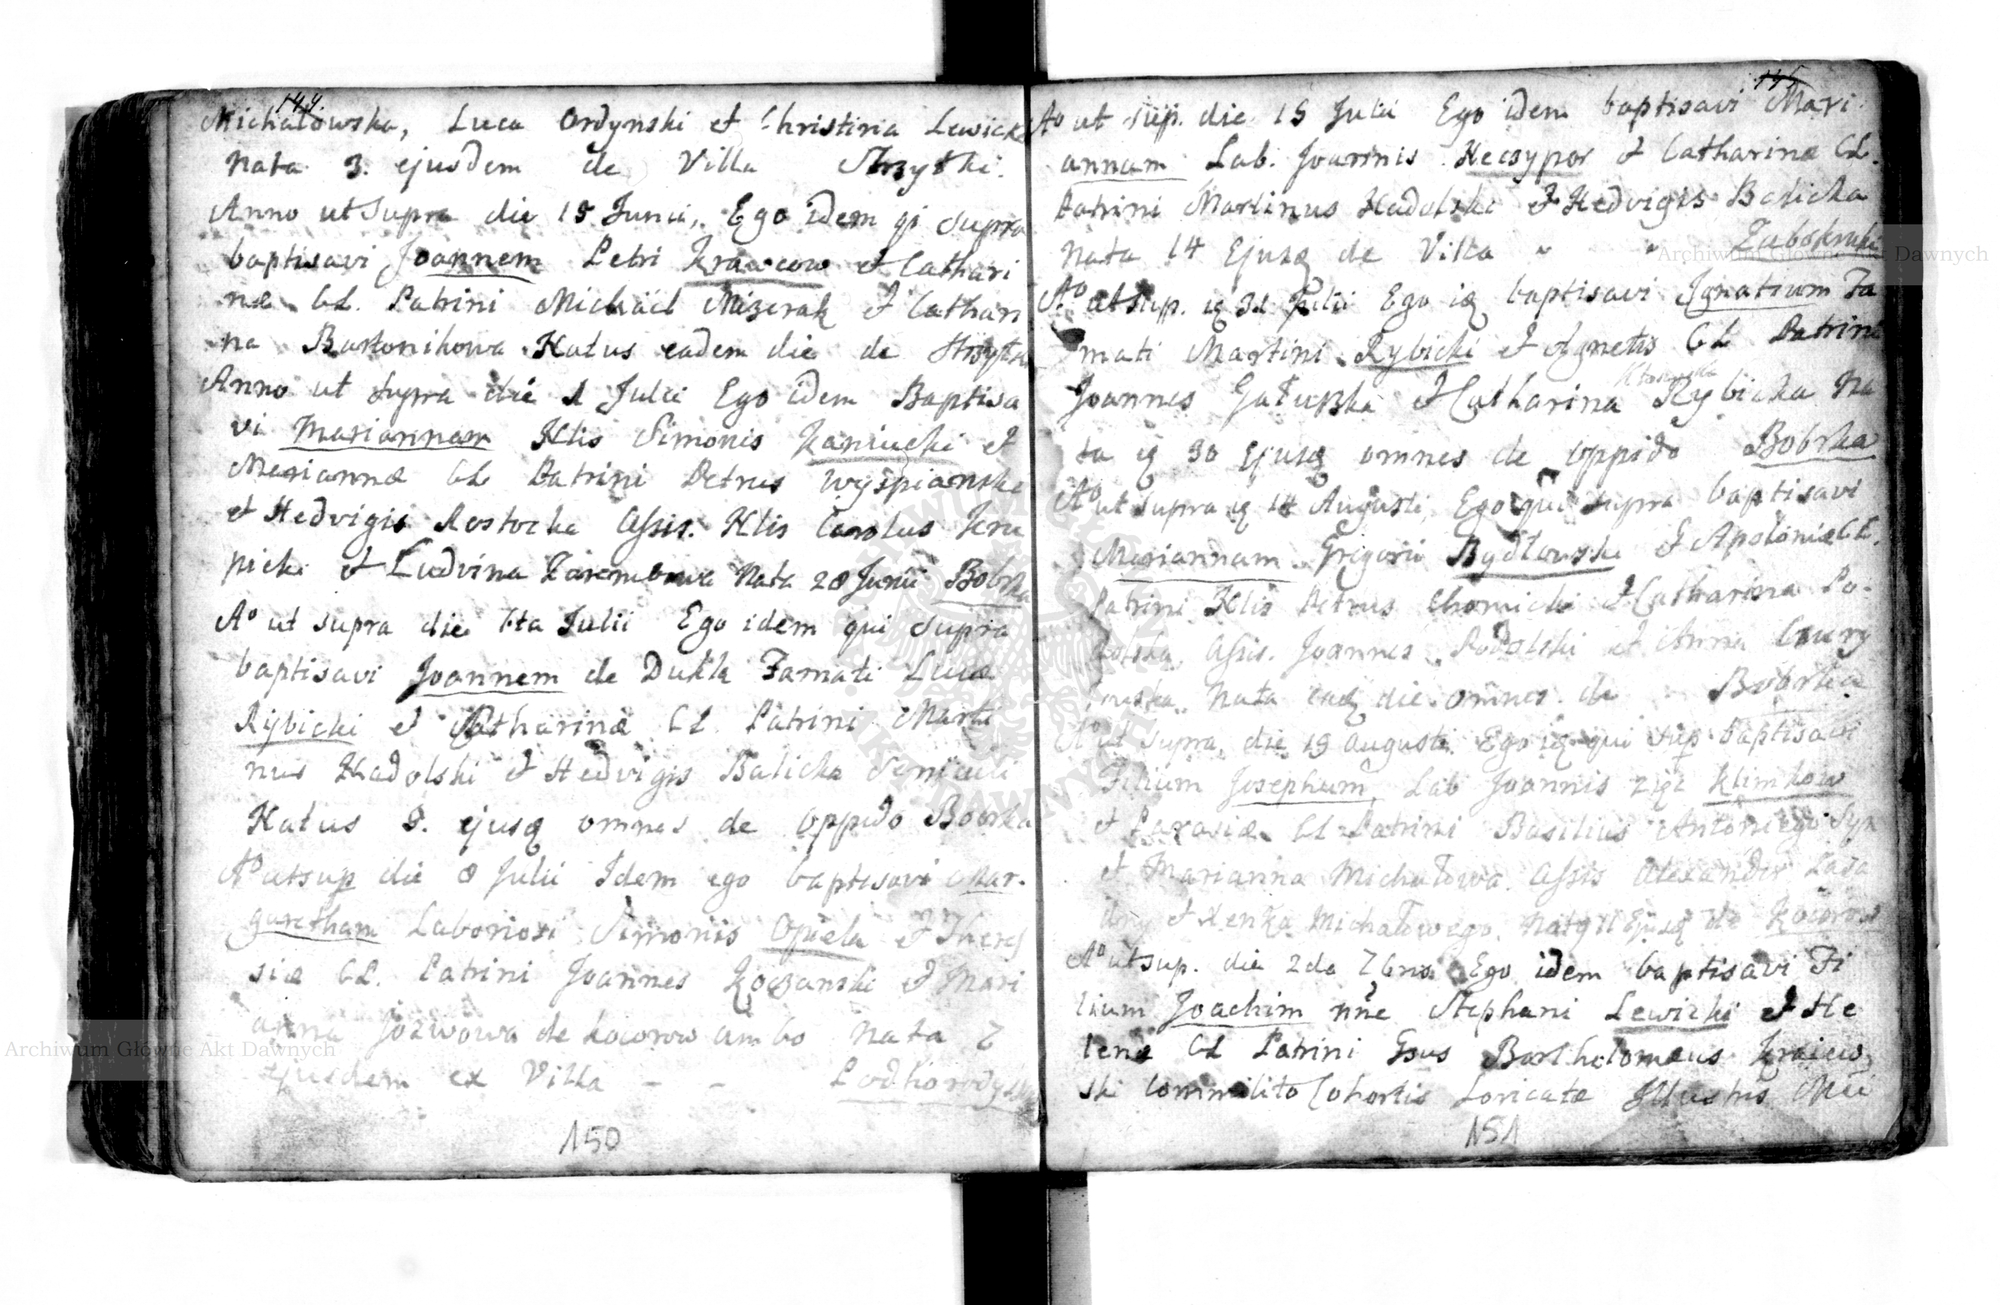 144.
Michałowska, Luca Ordynski et Christina Lewicka
nata 3. ejusdem de Villa Strzytki.
Anno ut Supra die 15 Junii, Ego idem qi supra
baptisavi Joannem Petri Krawcow et Cathari
næ CL. Patrini Michael Mizerak et Cathari
na Bartonikowa Natus eadem die de
Anno ut Supra die 1 Julii Ego idem Baptisa
vi Mariannam Nlis Simonis Kaniucki et
Mariannæ CL Patrini Petrus Wyspianski
et Hedvigis Rostocka Assis. Nlis Carolus Kru
picki et Ludvina Zarembowa Nata 28 Junii Bobrka
Ao ut supra die 6ta Julii Ego idem qui supra
baptisavi Joannem de Dukla Famati Lucæ
Rybicki et Catharinæ CL Patrini Marti
nus Nadolski et Hedvigis Balicka
Natus 3. ejusq omnes de oppido Bobrka
Ao ut sup die 8 Julii Idem ego baptisavi Mar-
garetham Laboriosi Simonis Opiela et There
siæ CL. Patrini Joannes Koczanski et Mari
anna Jozwowa de Kocorow ambo nata 7
ejusdem ex Villa - - Podhorodysz
150
145
Ao ut sup. die 15 Julii Ego idem baptisavi Mari
annam Lab. Joannis Neczypor et Catharinæ CL.
Patrini Martinus Nadolski et Hedvigis Balicka
nata 14 Ejusq de Villa " " Zabokruki
Ao ut sup. iq 31 Julii Ego iq baptisavi Ignatium Fa
mati Martini Rybicki et Agnetis CL Patrini
Joannes Gałuszka et Catharina Rybicka Na
ta iq 30 Ejusq omnes de oppido Bobrka
Ao ut supra iq 14 Augusti, Ego qui supra baptisavi
Mariannam Grigorii Bydłowski et Apoloniæ CL.
Patrini Nlis Petrus Chomicki et Catharina Po-
dolska, Assis. Joannes Podolski et Anna
Nata eaq die omnes de Bobrka
Ao ut supra, die 19 Augusti Ego iq qui sup baptisavi
Filium Josephum, Lab Joannis Klimkow
et Parasiæ CL Patrini Basilius Antoniego Syn
et Marianna Michałowa, Assis Alexander
et Michałowego, Ejusq de Kocorow
Ao ut sup. die 2da 7bris Ego idem baptisavi Fi
lium Joachim nne Stephani Lewicki et He
lenæ CL Patrini Gsus Bartholomæus Krajew
ski Commilito Cohortis Loricatæ Illustris
151
Archiwum Główne Akt Dawnych
Archiwum Główne Akt Dawnych